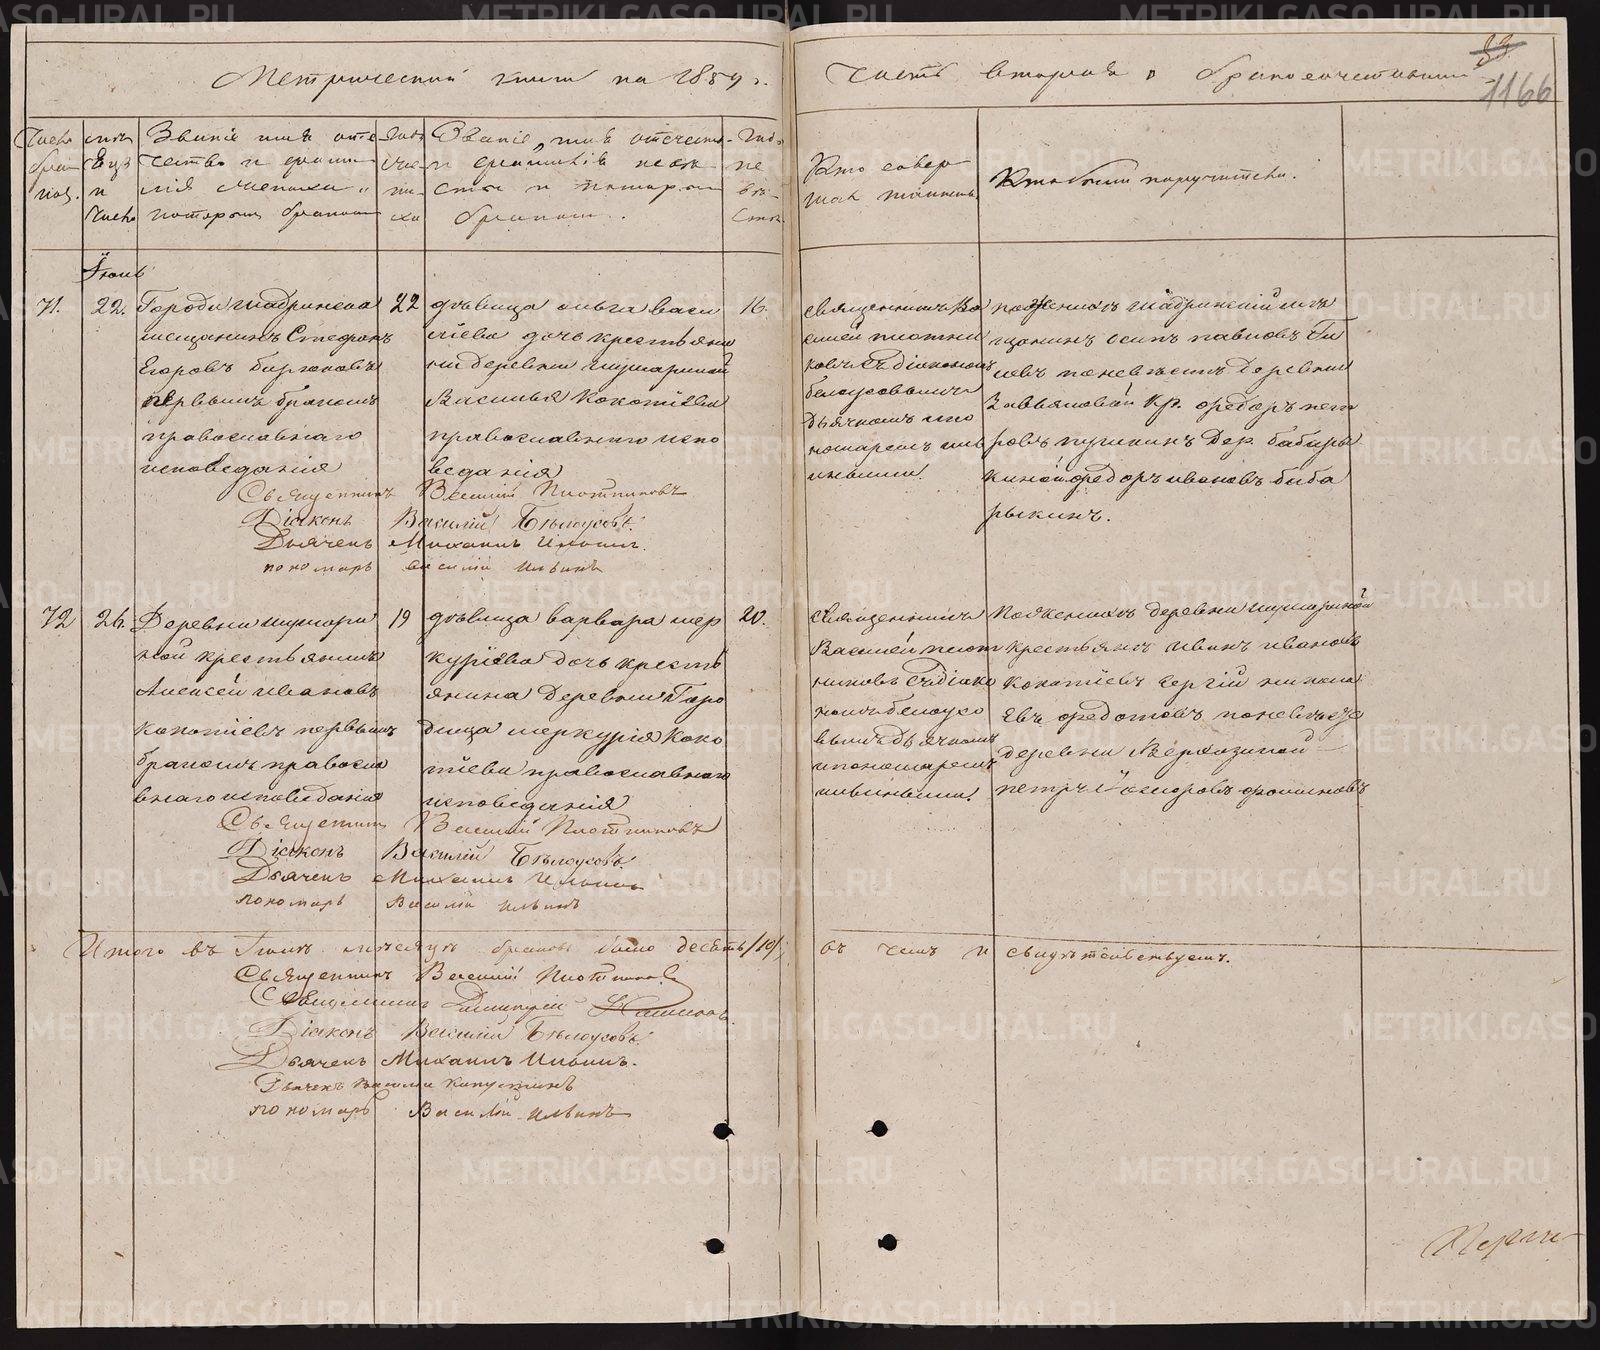 Метрической книги на 1859 г.
Часть вторая о бракосочетавшихся
1166
Число браковъ.
Мѣсяцъ и число
Званіе имя отечество и фамилія жениха и которымъ бракомъ
Лѣта жениха
Званіе, имя отечество и фамилія невѣсты и которымъ бракомъ.
Лѣта невѣсты
Кто совершалъ таинство.
Кто были поручители.
Іюнь
71.
22.
Города Шадринска
мещанинъ Стефанъ
Егоровъ
первымъ бракомъ
православнаго
исповеданія
22
дѣвица Ольга Васи
ліева дочь крестьяни
на деревни
Василья Кокотѣева
православнаго испо
веданія
16.
Священникъ Ва
силей Плотни
ковъ съ діакономъ
Белоусовымъ
дьячкомъ и по
номаремъ Иль
иными.
по женихѣ Шадринскій мѣ
щанинъ Осипъ Павловъ
по невѣстѣ деревни
Завьяловой кр. Федоръ Пет
ровъ Пушкинъ дер. Бабары
киной Федоръ Ивановъ Баба
рыкинъ.
Священникъ Василій Плотниковъ
Діаконъ Василій Бѣлоусовъ
Дьячекъ Михаилъ Ильинъ.
пономарь Василій Ильинъ
72
26.
Деревни
ной крестьянинъ
Алексей Ивановъ
Кокотѣевъ первымъ
бракомъ правосла
внаго исповеданія
19
дѣвица Варвара Мер
курѣева дочь кресть
янина деревни Горо
дища Меркурія Коко
тѣева православнаго
исповеданія
20.
Священникъ
Василей Плот
никовъ съ діако
номъ Белоусо
вымъ дьячкомъ
и пономаремъ
Ильиными.
По женихѣ деревни
крестьянъ Иванъ Ивановъ
Кокотѣевъ Сергій Никола
евъ Федотовъ по невѣсте
деревни Верхозиной
Петръ Сидоровъ
Священникъ Василій Плотниковъ
Діаконъ Василій Бѣлоусовъ
Дьячекъ Михаилъ Ильинъ
Пономарь Василій Ильинъ
Итого въ Іюнѣ мѣсяцѣ браковъ было десять /10/, въ чемъ и свидѣтельствуемъ.
Священникъ Василій Плотниковъ
Священникъ Димитрій
Діаконъ Василій Бѣлоусовъ
Дьячекъ Михаилъ Ильинъ.
Дьячекъ Василій Капустинъ
пономарь Василій Ильинъ
METRIKI.GASO-URAL.RU